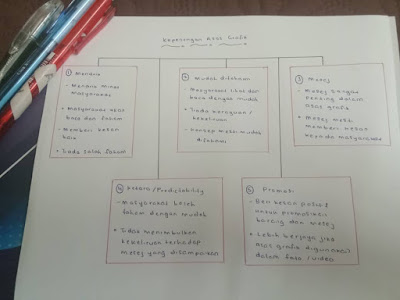 Kepentingan Asas Grafik
① Menarik
- Menarik minat
masyarakat
• Masyarakat akan
baca dan faham
- Memberi kesan
baik
• Tiada salah faham
② Mudah difaham
- Masyarakat lihat dan
baca dengan mudah
• Tiada keraguan /
kekeliruan
- Konsep mesti mudah
difahami
③ Mesej
- Mesej sangat
penting dalam
asas grafik
• Mesej mesti
memberi kesan
kepada masyarakat
④ Ketara / Predictability
- Masyarakat boleh
faham dengan mudah
• Tidak menimbulkan
kekeliruan terhadap
mesej yang disampaikan
⑤ Promosi
- Beri kesan positif
untuk promosikan
barang dan mesej
• Lebih berjaya jika
asas grafik digunakan
dalam fasa / video